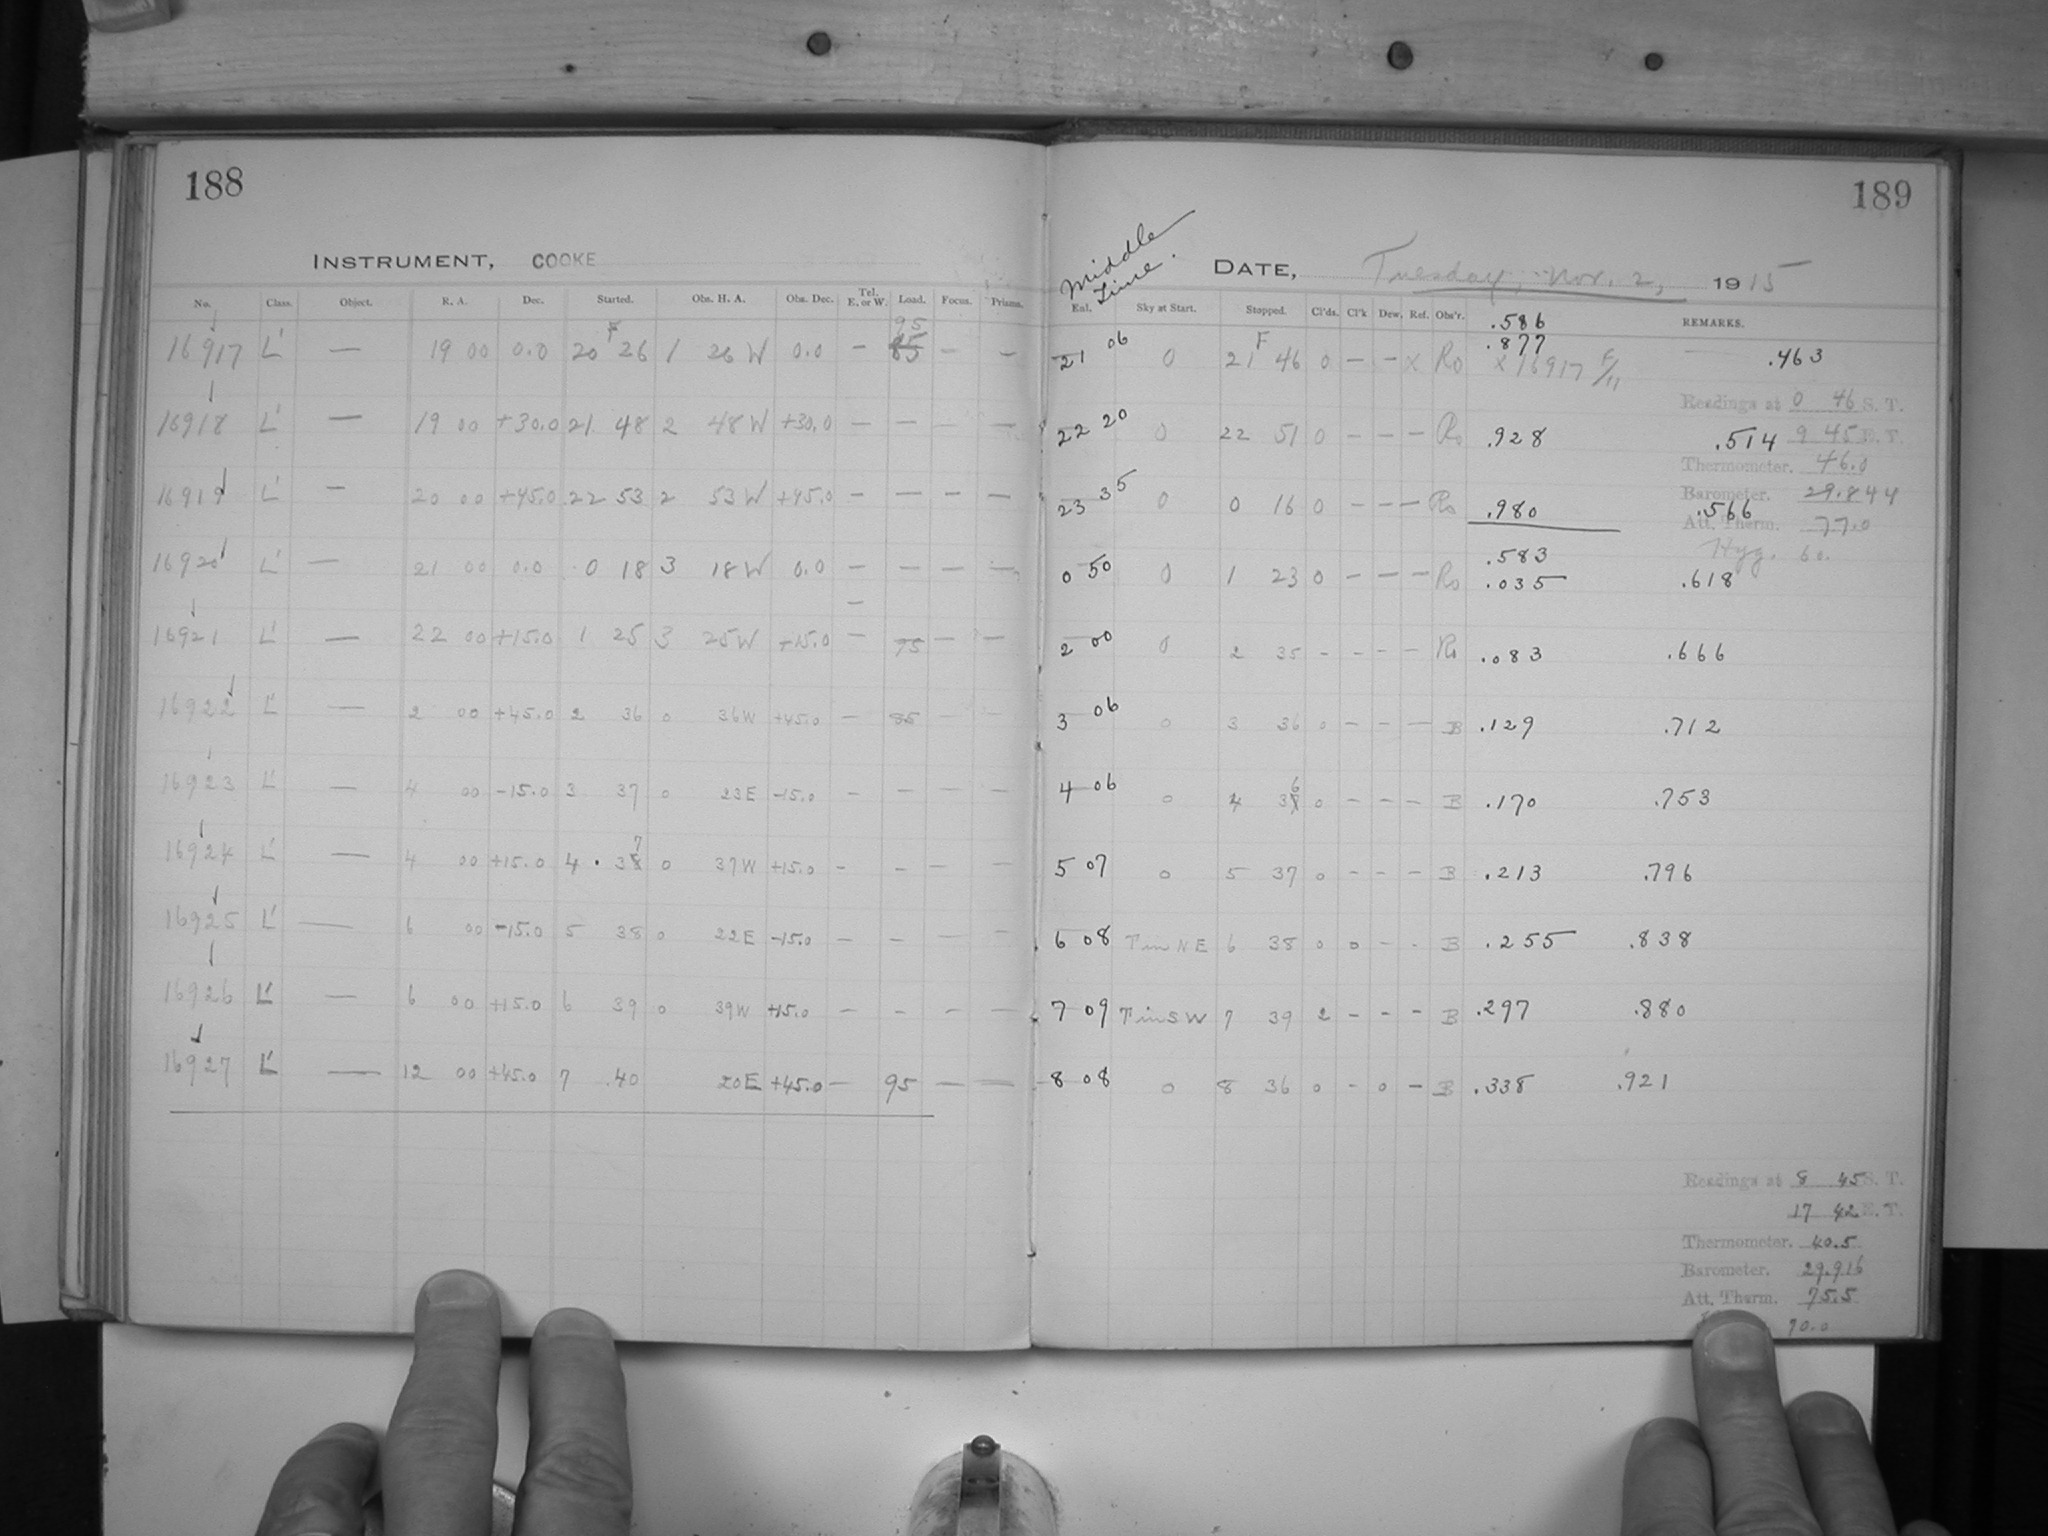 188
INSTRUMENT, COOKE
No. Class. Object. R. A. Dec. Started. Obs. H. A. Obs. Dec. Tel. E. or W. Load. Focus. Prisms.
95
16917 L' — 19 00 0.0 20 F 26 1 26 W 0.0 — 85 — —
16918 L' — 19 00 +30.0 21 48 2 48 W +30.0 — — — —
16919 L' — 20 00 +45.0 22 53 2 53 W +45.0 — — — —
16920 L' — 21 00 0.0 0 18 3 18 W 0.0 — — — —
16921 L' — 22 00 +15.0 1 25 3 25 W +15.0 — 75 — —
16922 L' — 2 00 +45.0 2 36 0 36 W +45.0 — 85 — —
16923 L' — 4 00 -15.0 3 37 0 23 E -15.0 — — — —
16924 L' — 4 00 +15.0 4 37 0 37 W +15.0 - - — —
16925 L' — 6 00 -15.0 5 38 0 22 E -15.0 — - — —
16926 L' — 6 00 +15.0 6 39 0 39 W +15.0 — - — —
16927 L' — 12 00 +45.0 7 40 20 E +45.0 — 95 — —
189
Middle Time.
DATE, Tuesday, Nov. 2, 1915
Enl. Sky at Start. Stopped. Cl'ds. Cl'k Dew. Ref. Obs'r. REMARKS.
.586
.877
21 06 0 21 F 46 0 — — x Ro x 16917 F/11 .463
Readings at 0 46 S. T.
22 20 0 22 51 0 — — — Ro .928 .514 9 45 E. T.
Thermometer. 46.0
Barometer. 29.844
23 35 0 0 16 0 — — — Ro .980 .566
Att. Therm. 77.0
Hyg. 60.
.583
0 50 0 1 23 0 — — — Ro .035 .618
2 00 0 2 35 - - - — Ro .083 .666
3 06 0 3 36 0 — — — B .129 .712
4 06 0 4 36 0 - - - B .170 .753
5 07 0 5 37 0 - - - B .213 .796
6 08 T in NE 6 38 0 0 - . B .255 .838
7 09 T in SW 7 39 2 - - - B .297 .880
8 08 0 8 36 0 - 0 - B .338 .921
Readings at 8 45 S. T.
17 42 E. T.
Thermometer. 40.5
Barometer. 29.916
Att. Therm. 75.5
90.0